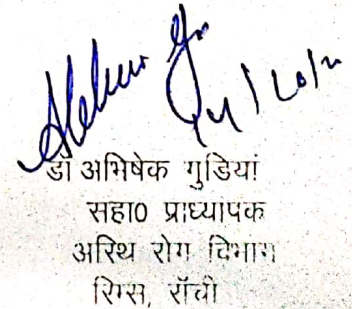 डॉ अभिषेक गुडियां
सहा0 प्राध्यापक
अस्थि रोग विभाग
रिम्स, राँची